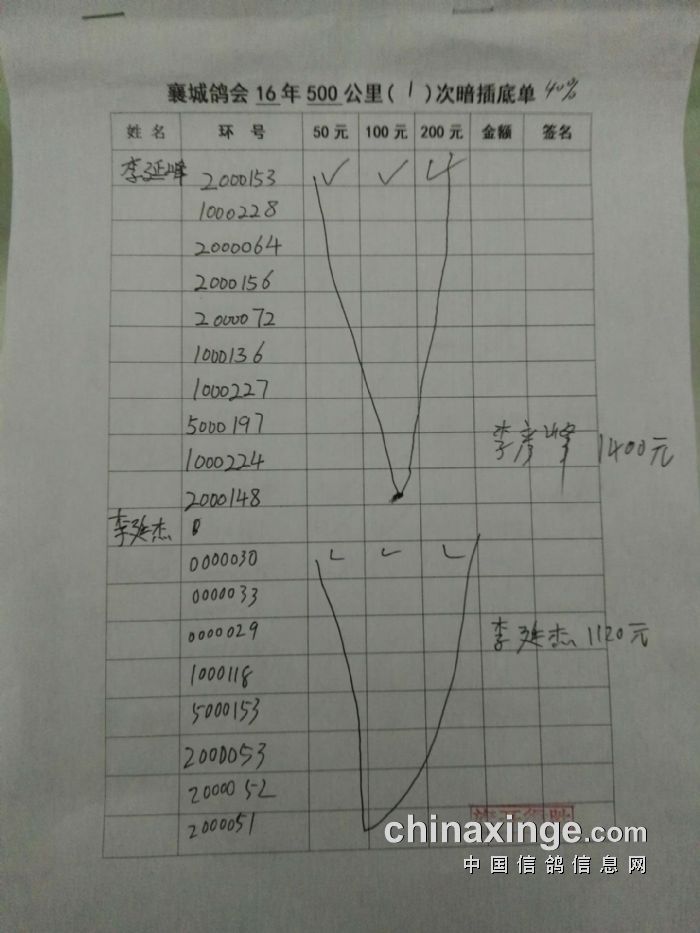 襄城鸽会 16 年 500 公里( 1 )次暗插底单 40%
姓 名 环 号 50 元 100 元 200 元 金额 签名
李延峰 2000153 ✓ ✓ ✓
1000228
2000064
2000156
2000072
1000136
1000227
5000197
李彦峰 1400元
1000224
2000148
李延杰
0000030 ✓ ✓ ✓
0000033
0000029
李延杰 1120元
1000118
5000153
2000053
2000052
2000051
chinaxinge.com
中国信鸽信息网